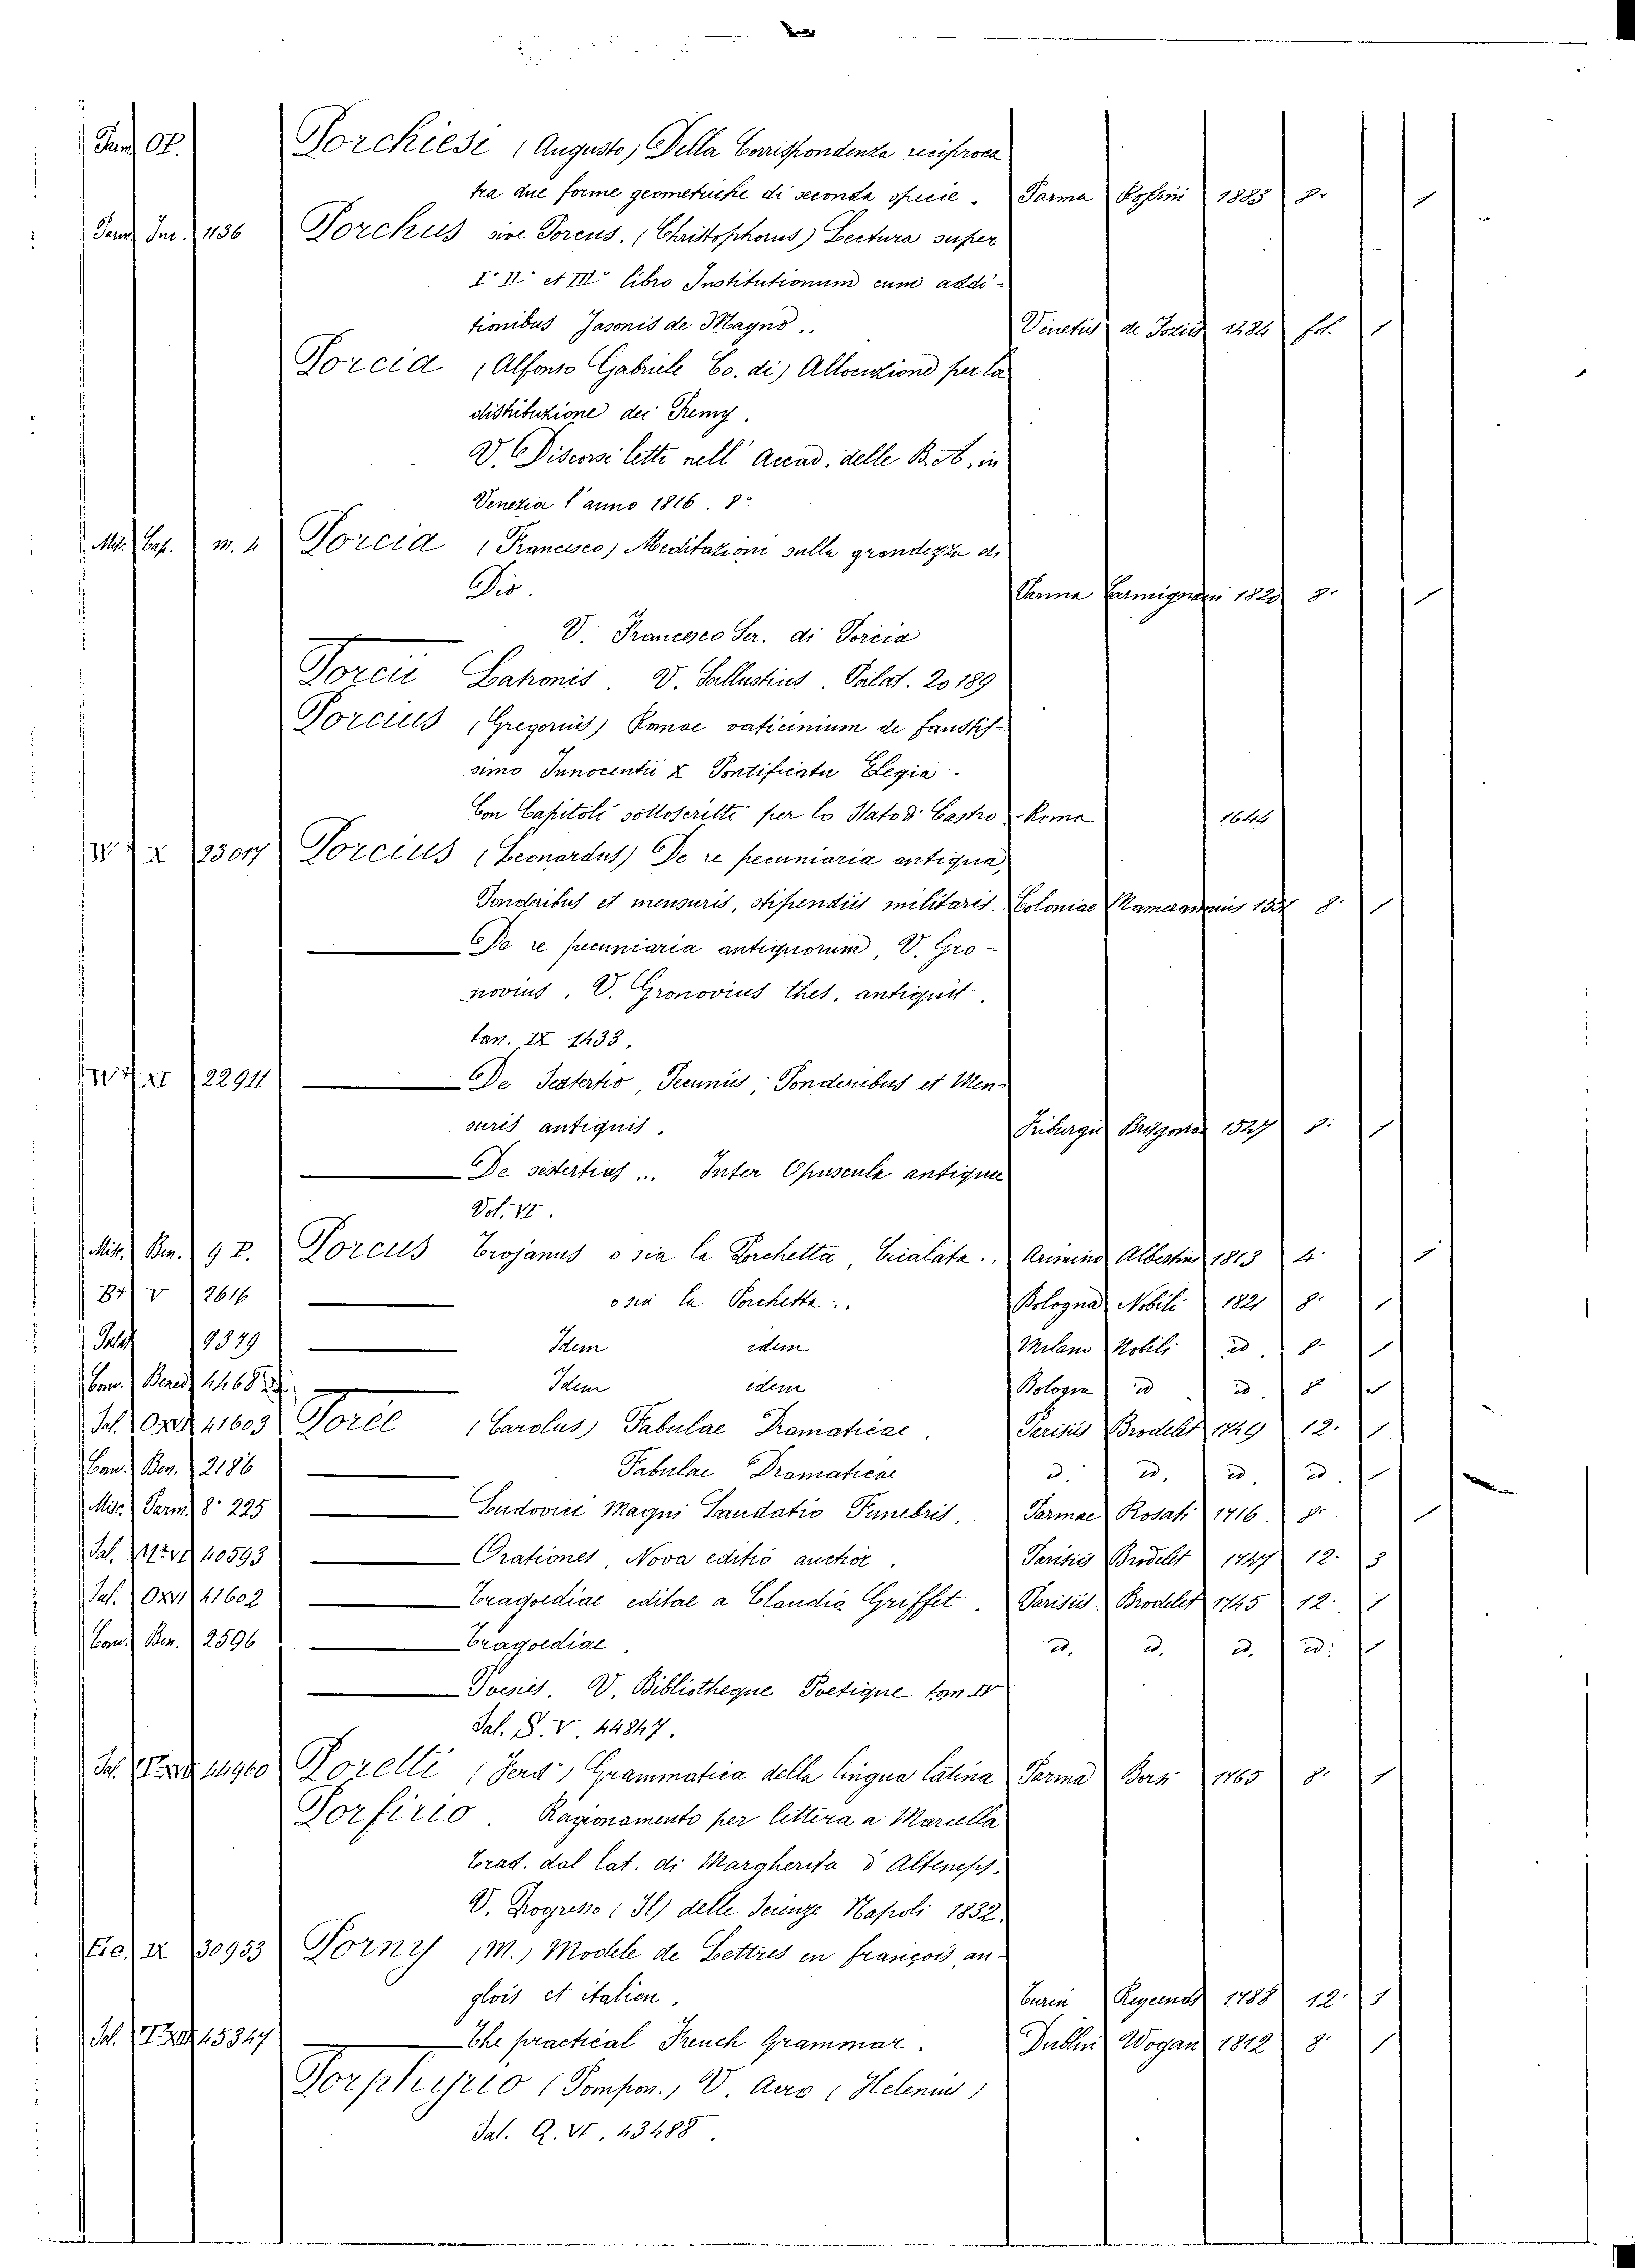 Parm OP. Porchiesi (Augusto) Della Corrispondenza reciproca
tra due forme geometriche di seconda specie. Parma 1883 8° 1
Parm Inc. 1136 Porchus sive Porcus. (Christophorus) Lectura super
I° II° et III° libro Institutionum cum addi-
tionibus Jasonis de Mayno.. Venetiis de 1484 fol. 1
Porcia (Alfonso Gabriele Co. di) Allocuzione per la
distribuzione dei Premj.
V. Discorsi letti nell' Accad. delle B. A. in
Venezia l'anno 1816. 8°
Misc. Cap. m. 4 Porcia (Francesco) Meditazioni sulla grandezza di
Dio. Parma Carmignani 1829 8° 1
V. Francesco Ser. di Porcia
Porcii Latronis. V. Sallustius. Palat. 20189
Porcius (Gregorius) Romae vaticinium de faustis-
simo Innocentii X Pontificatu Elegia.
Con Capitoli sottoscritti per lo Stato di Castro - Roma 1644
X 23017 Porcius (Leonardus) De re pecuniaria antiqua,
Ponderibus et mensuris, stipendiis militaris. Coloniae 8° 1
— De re pecuniaria antiquorum, V. Gro-
novius. V. Gronovius thes. antiquit.
tav. IX 1433.
XI 22911 — De Sestertio, Pecuniis, Ponderibus et Men-
suris antiquis. Friburgii Brisgoviae 1547 8° 1
— De sestertius... Inter Opuscula antiqua
Vol. VI.
Misc. Ben. 9 P. Porcus Trojanus o sia la Porchetta, Cicalata.. Arimino Albertini 1813 4° 1
B4 V 2616 — o sia la Porchetta.. Bologna Nobili 1821 8° 1
Palat 9379 — Idem idem Milano Nobili id. 8° 1
Com. Bened 4468 — Idem idem Bologna id id. 8° 1
Sal. OXVI 41603 Porée (Carolus) Fabulae Dramaticae. Parisiis Brodelet 1749 12. 1
Com. Ben. 2186 — Fabulae Dramaticae id. id. id. id. 1
Misc. Parm. 8° 225 — Ludovici Magni Laudatio Funebris. Parmae Rosati 1716 8°
Sal. 40593 — Orationes, Nova editio auctior. Parisiis Brodelet 1747 12. 3
Sal. OXVI 41602 — Tragoediae editae a Claudio Griffet. Parisiis Brodelet 1745 12. 1
Com. Ben. 2596 — Tragoediae. id. id. id. id. 1
— Poesies. V. Bibliotheque Poetique tom IV
Sal. S. V. 44847.
Sal. 44960 Porelli (Ferd°) Grammatica della lingua latina Parma 1765 8° 1
Porfirio. Ragionamento per lettera a Marcella
trad. dal lat. di Margherita d'Altemps.
V. Progresso (Il) delle Scienze Napoli 1832.
IX 30953 Porny (M.) Modele de Lettres en françois, an-
glois et italien. Turin Reycends 1788 12. 1
Sal. 45347 — The practical French Grammar. Dublin Wogan 1812 8° 1
Porphyrio (Pompon.) V. Acro (Helenius)
Sal. Q. VI. 43488.